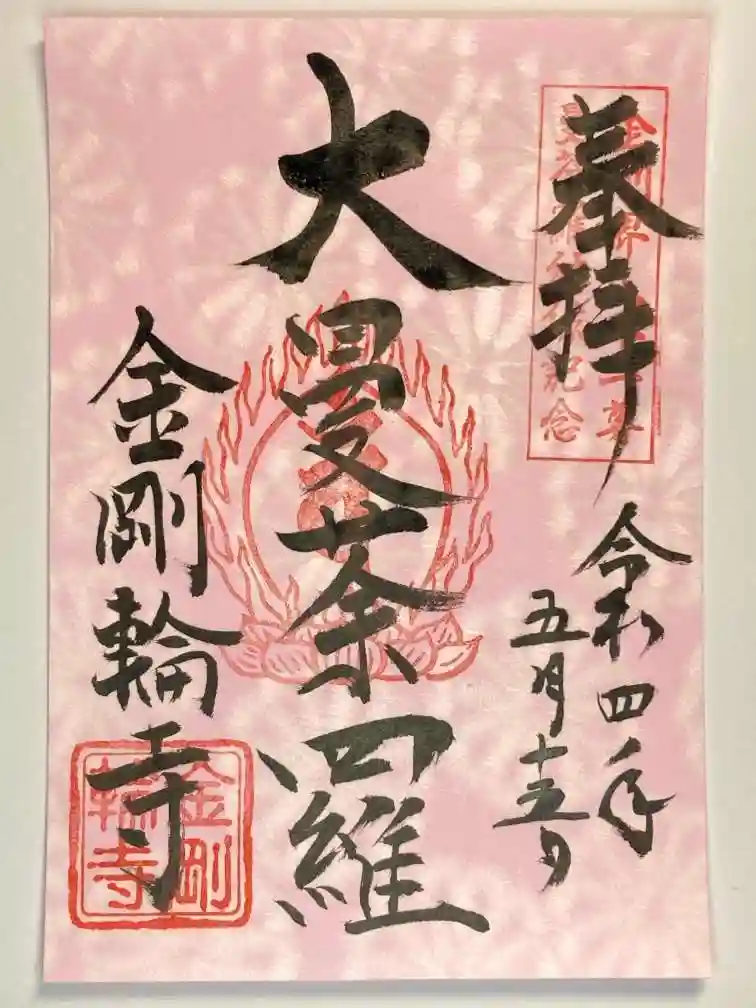 奉拝
令和四年
五月十五日
大曼荼羅
金剛輪寺
金剛
輪寺